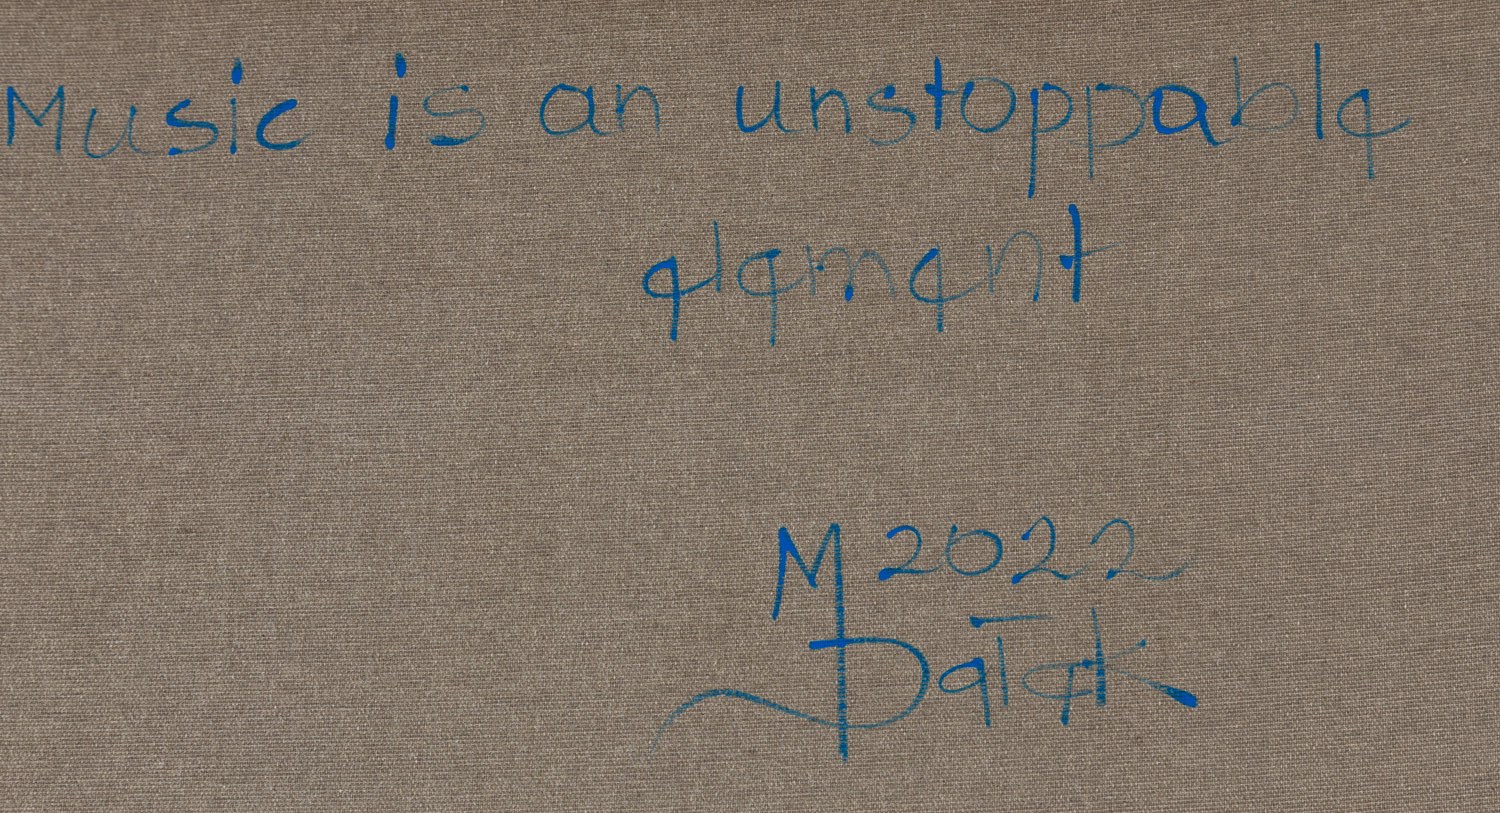 Music is an unstoppable
element
M 2022
Datek